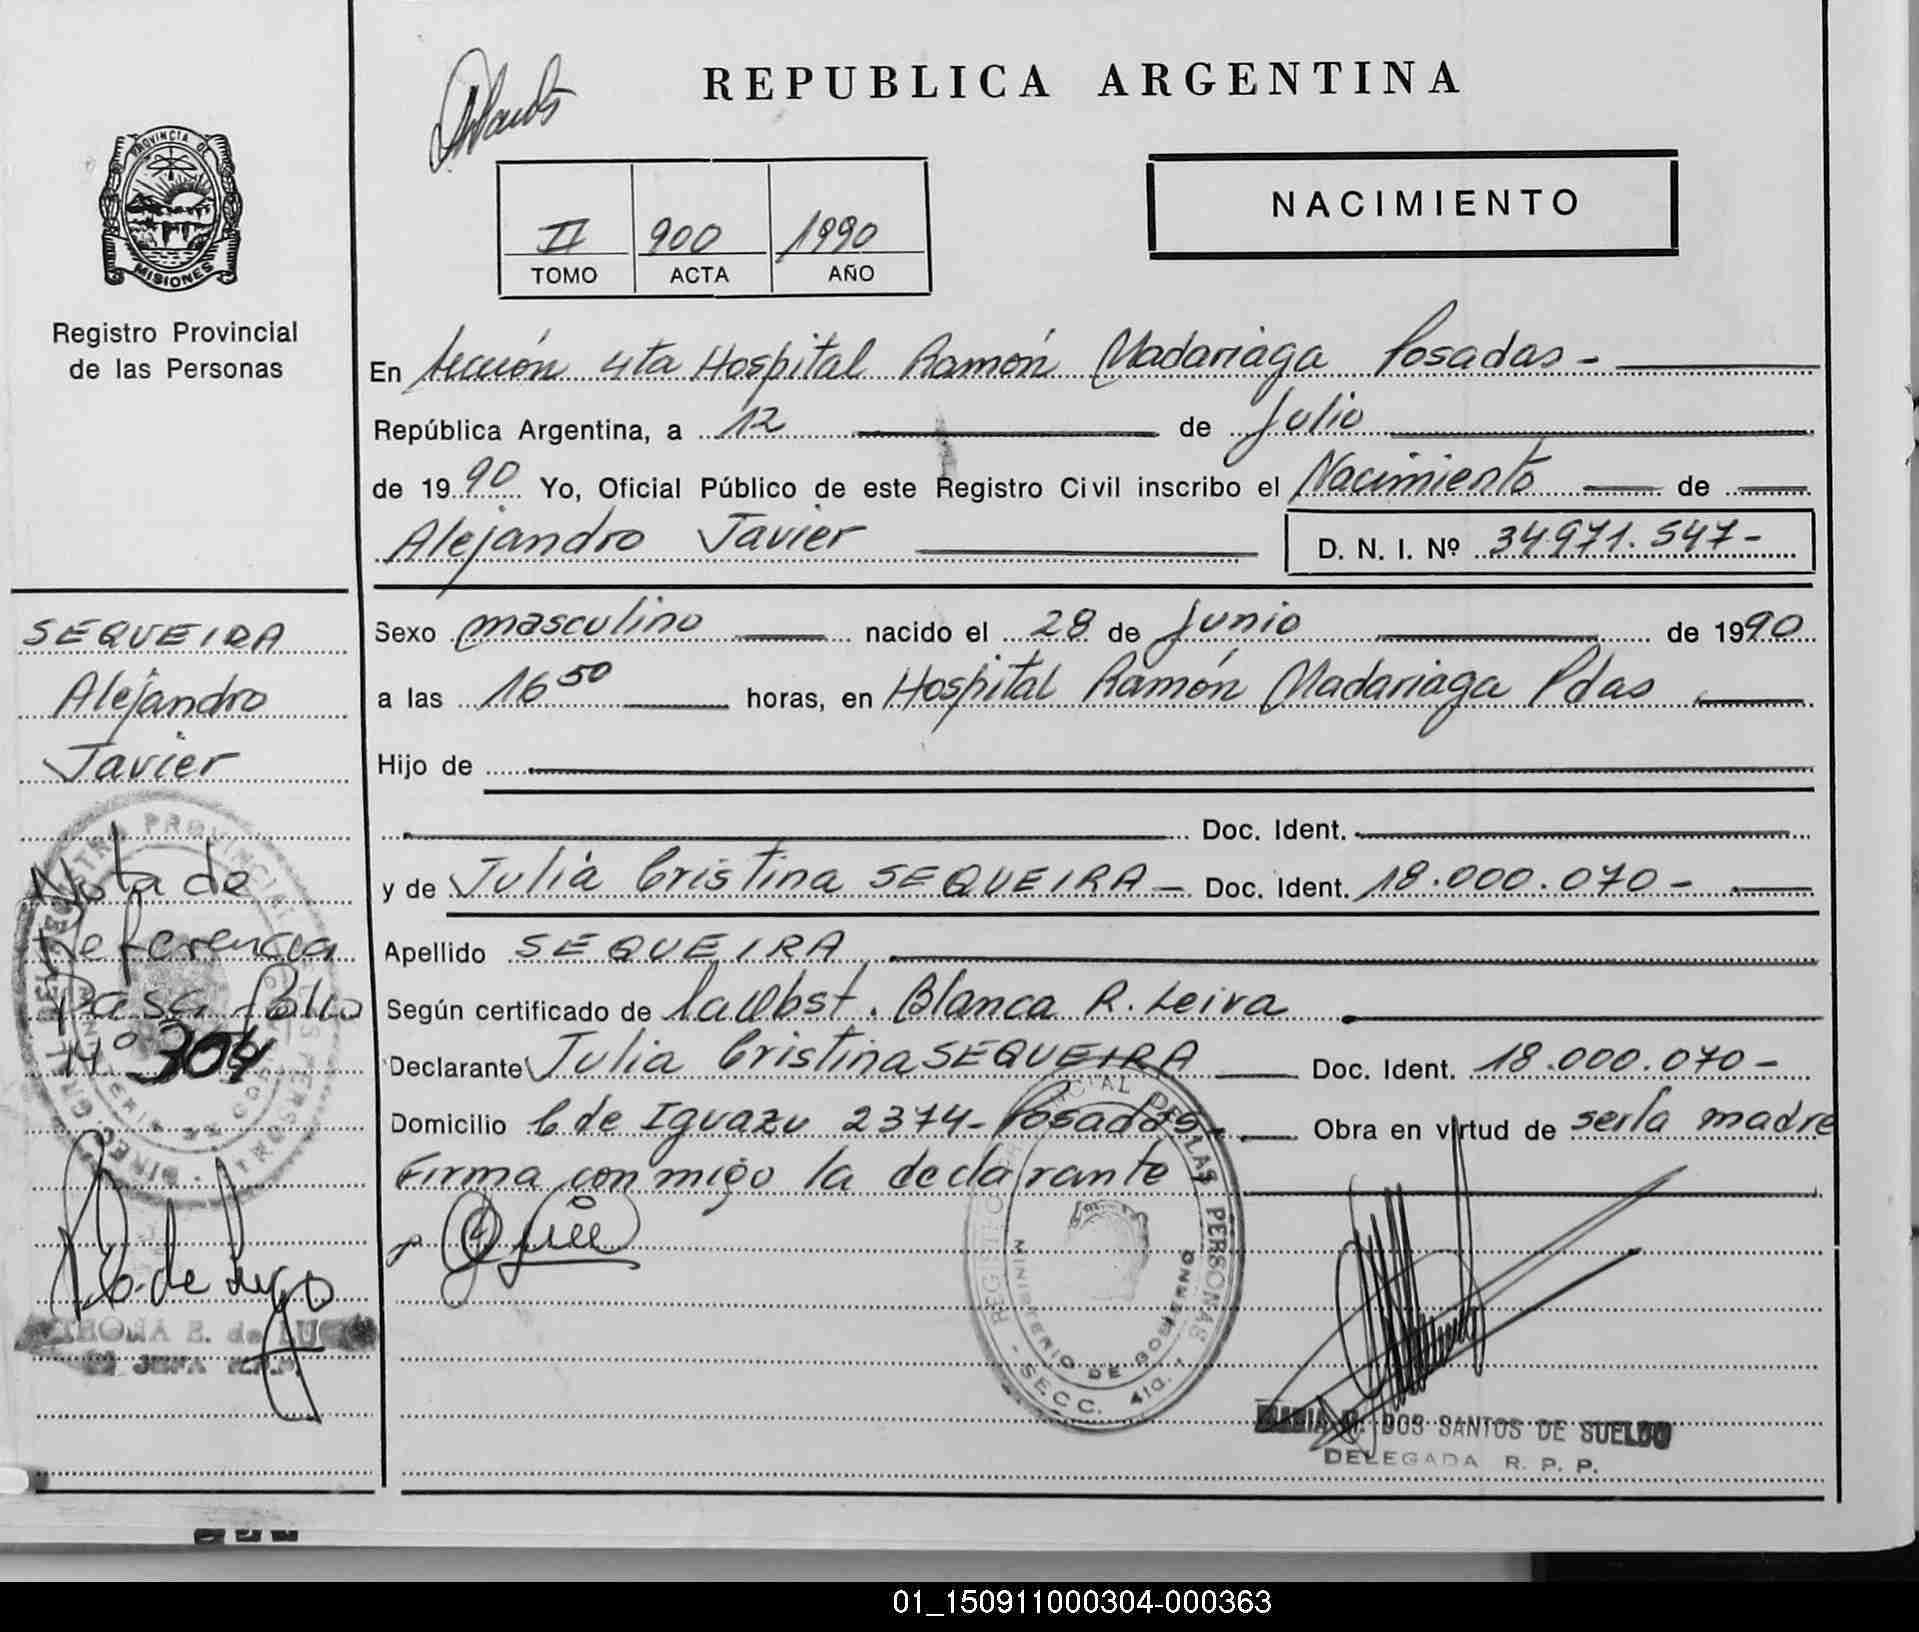 REPUBLICA ARGENTINA
PROVINCIA DE
MISIONES
Registro Provincial
de las Personas
II 900 1990
TOMO ACTA AÑO
NACIMIENTO
En Sección 4ta Hospital Ramón Madariaga Posadas -
República Argentina, a 12 de Julio
de 1990 Yo, Oficial Público de este Registro Civil inscribo el Nacimiento de
Alejandro Javier D. N. I. Nº 34971.547-
Sexo masculino nacido el 28 de Junio de 1990
a las 16 50 horas, en Hospital Ramón Madariaga Pdas
Hijo de
Doc. Ident.
y de Julia Cristina SEQUEIRA - Doc. Ident. 18.000.070-
Apellido SEQUEIRA
Según certificado de la Obst. Blanca R. Leiva
Declarante Julia Cristina SEQUEIRA Doc. Ident. 18.000.070-
Domicilio C de Iguazu 2374- Posadas- Obra en virtud de ser la madre
Firma conmigo la declarante
SEQUEIRA
Alejandro
Javier
Nota de
Referencia
Pasa folio
Nº 304
REGISTRO PROVINCIAL DE LAS PERSONAS
MINISTERIO DE GOBIERNO
- SECC. 4ta. -
DOS SANTOS DE SUELDO
DELEGADA R. P. P.
01_150911000304-000363